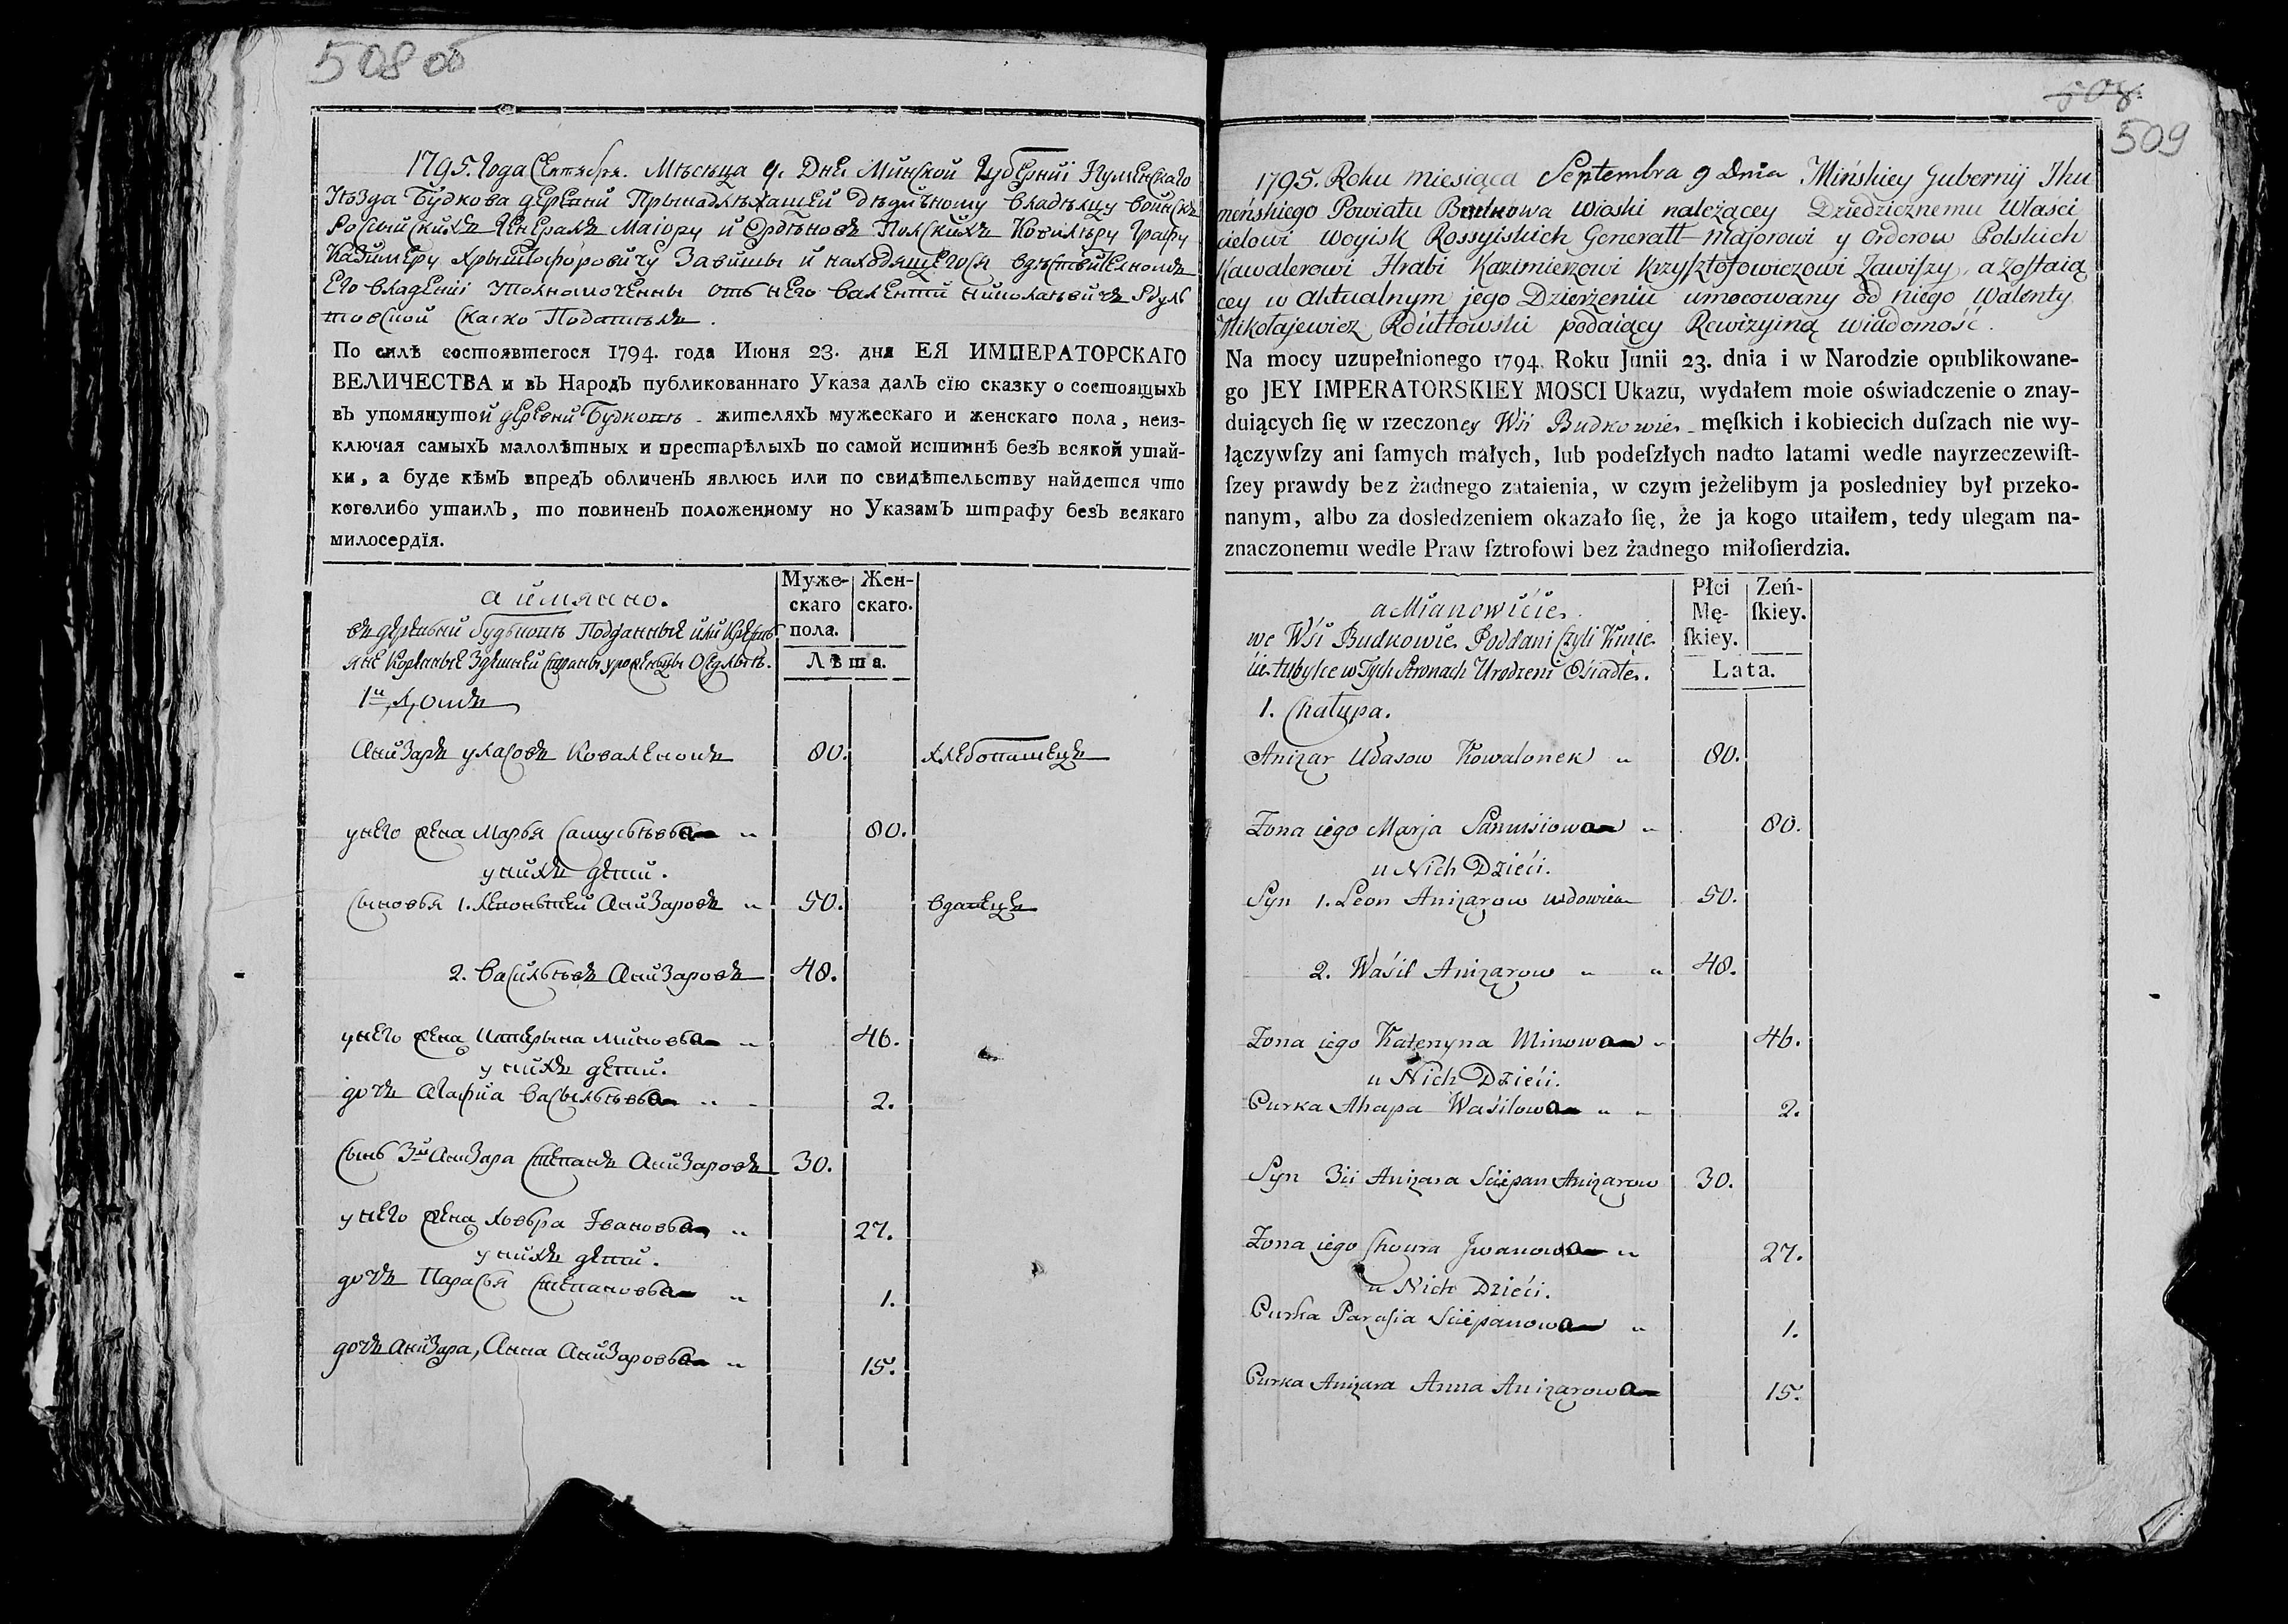 508 об
1795. Года Сентября. Мѣсяца 9. Дня Минской Губерніі Игуменскаго
Уѣзда Будкова деревни Прынадлѣжащей дѣдичному владѣлцу войскъ
Россыйскихъ Генералъ Маіору и Ордѣновъ Полскихъ Ковалѣру Графу
Казимеру Хрыштофоровичу Завишы и находящегося
Его владениі уполномоченны отъ него Валентй Николаевичъ Рдул
товской
По силѣ состоявшегося 1794. года Июня 23. дня ЕЯ ИМПЕРАТОРСКАГО
ВЕЛИЧЕСТВА и въ Народъ публикованнаго Указа далъ сїю сказку о состоящыхъ
въ упомянутой деревни Будковѣ жителяхъ мужескаго и женскаго пола, неиз-
ключая самыхъ малолѣтныхъ и престарѣлыхъ по самой истиннѣ безъ всякой утай-
ки, а буде кѣмъ впредъ обличенъ явлюсь или по свидѣтельству найдется что
коголибо утаилъ, то повиненъ положенному по Указамъ штрафу безъ всякаго
милосердїя.
а имянно.
въ деревни Будковѣ Подданные или Кресть
яне Коренные Здешней Страны уроженцы Оседлые.
Муже-
скаго
пола.
Жен-
скаго.
Лѣта.
1й Домъ
Анизаръ Уласовъ Коваленокъ 80. хлебопашецъ
у него жена Марья Самусьевна „ 80.
у нихъ дети.
Сыновья 1. Леонътей Анизаровъ „ 50. вдавецъ
2. Васильевъ Анизаровъ 48.
у него жена Катерына Миновна „ 46.
у нихъ дети.
дочь Агафиа Васыльевна „ „ 2.
Сынъ 3й Анизара Степанъ Анизаровъ 30.
у него жена Ховра Івановна „ 27.
у нихъ дети.
дочь Парасья Степановна „ 1.
дочь Анизара, Анна Анизаровна „ 15.
508.
509
1795. Roku miesiąca Septembra 9 Dnia Mińskiey Gubernij Ihu
meńskiego Powiatu Budkowa wioski należącey Dziedzicznemu Właści
cielowi woyisk Rossyiskich Generałł-Majorowi y Orderow Polskich
Kawalerowi Hrabi Kazimierzowi Krzysztofowiczowi Zawiszy, a zostaią
cey w aktualnym jego Dzierżeniu umocowany od niego Walenty
Mikołajewicz Rdułtowski podaiący Rewizyiną wiadomość.
Na mocy uzupełnionego 1794. Roku Junii 23. dnia i w Narodzie opublikowane-
go JEY IMPERATORSKIEY MOSCI Ukazu, wydałem moie oświadczenie o znay-
duiących ſię w rzeczoney Wśi Budkowie męſkich i kobiecich duſzach nie wy-
łączywſzy ani ſamych małych, lub podeſzłych nadto latami wedle nayrzeczewiſt-
ſzey prawdy bez żadnego zataienia, w czym jeżelibym ja posledniey był przeko-
nanym, albo za dosledzeniem okazało ſię, że ja kogo utaiłem, tedy ulegam na-
znaczonemu wedle Praw ſztrofowi bez żadnego miłoſierdzia.
a Mianowićie.
we Wśi Budkowie Poddani czyli Kmie
ćie tubylce w Tych Stronach Urodzeni Ośiadłe.
Płci
Mę-
ſkiey.
Zeń-
ſkiey.
Lata.
1. Chałupa.
Anizar Ułasow Kowalonek „ 80.
Zona iego Marja Samusiowna „ 80.
u Nich Dzieći.
Syn 1. Leon Anizarow wdowiec 50.
2. Waśil Anizarow „ „ 48.
Zona iego Kateryna Minowna „ 46.
u Nich Dzieći.
Curka Ahapa Waśilowna „ „ 2.
Syn 3ći Anizara Sćiepan Anizarow 30.
Zona iego Chowra Jwanowna „ 27.
u Nich Dzieći.
Curka Parasia Sćiepanowna „ 1.
Curka Anizara Anna Anizarowna 15.